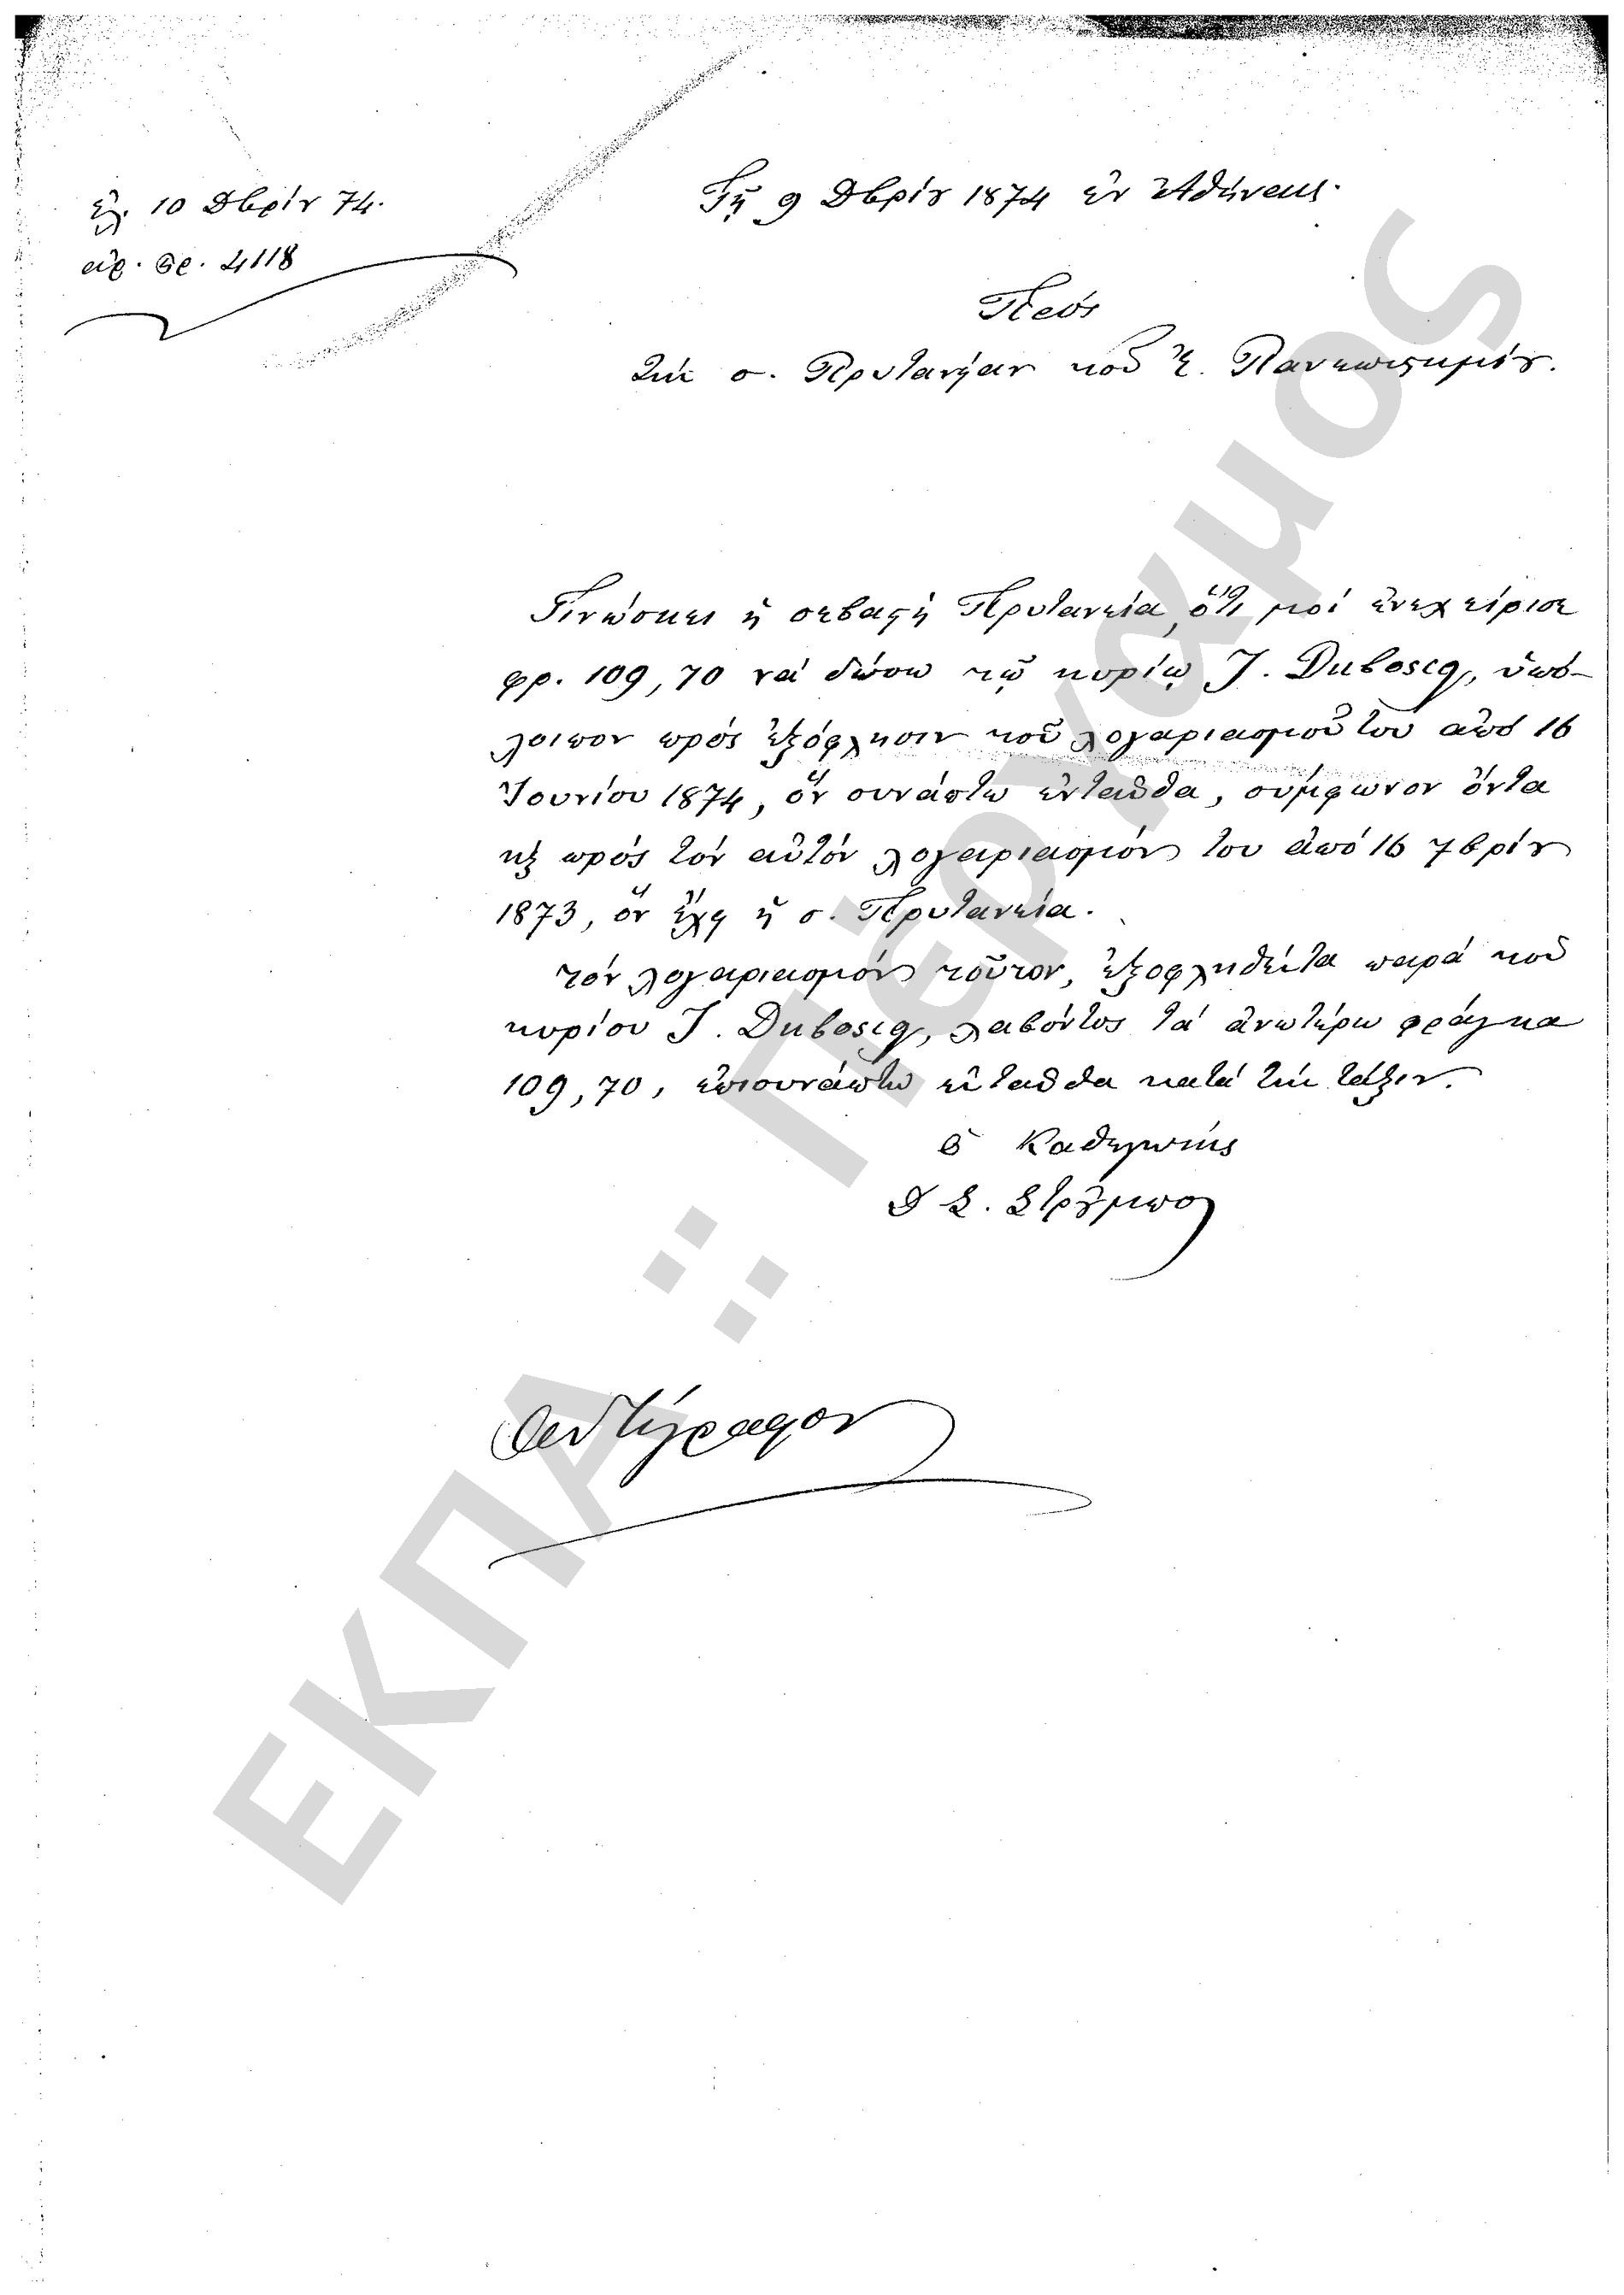 ἐλ. 10 Δβρίȣ 74.
ἀρ. πρ. 4118
Τῇ 9 Δβρίȣ 1874 ἐν Ἀθήναις.
Πρός
τὴν σ. Πρυτανείαν τοῦ Ἐ. Πανεπιστημίȣ.
Γινώσκει ἡ σεβαστὴ Πρυτανεία, ὅτι μοὶ ἐνεχείρισε
φρ. 109,70 νὰ δώσω τῷ κυρίῳ J. Duboscq, ὑπό-
λοιπον πρὸς ἐξόφλησιν τοῦ λογαριασμοῦ του ἀπὸ 16
Ἰουνίου 1874, ὃν συνάπτω ἐνταῦθα, σύμφωνον ὄντα
κὶ πρὸς τὸν αὐτὸν λογαριασμόν του ἀπὸ 16 7βρίȣ
1873, ὃν ἔχει ἡ σ. Πρυτανεία.
τὸν λογαριασμὸν τοῦτον, ἐξοφληθέντα παρὰ τοῦ
κυρίου J. Duboscq, λαβόντος τὰ ἀνωτέρω φράγκα
109,70, ἐπισυνάπτω ἐνταῦθα κατὰ τὴν τάξιν.
ὁ Καθηγητής
Δ Σ. Στρȣμπος
Ἀντίγραφον
ΕΚΠΑ :: Πέργαμος